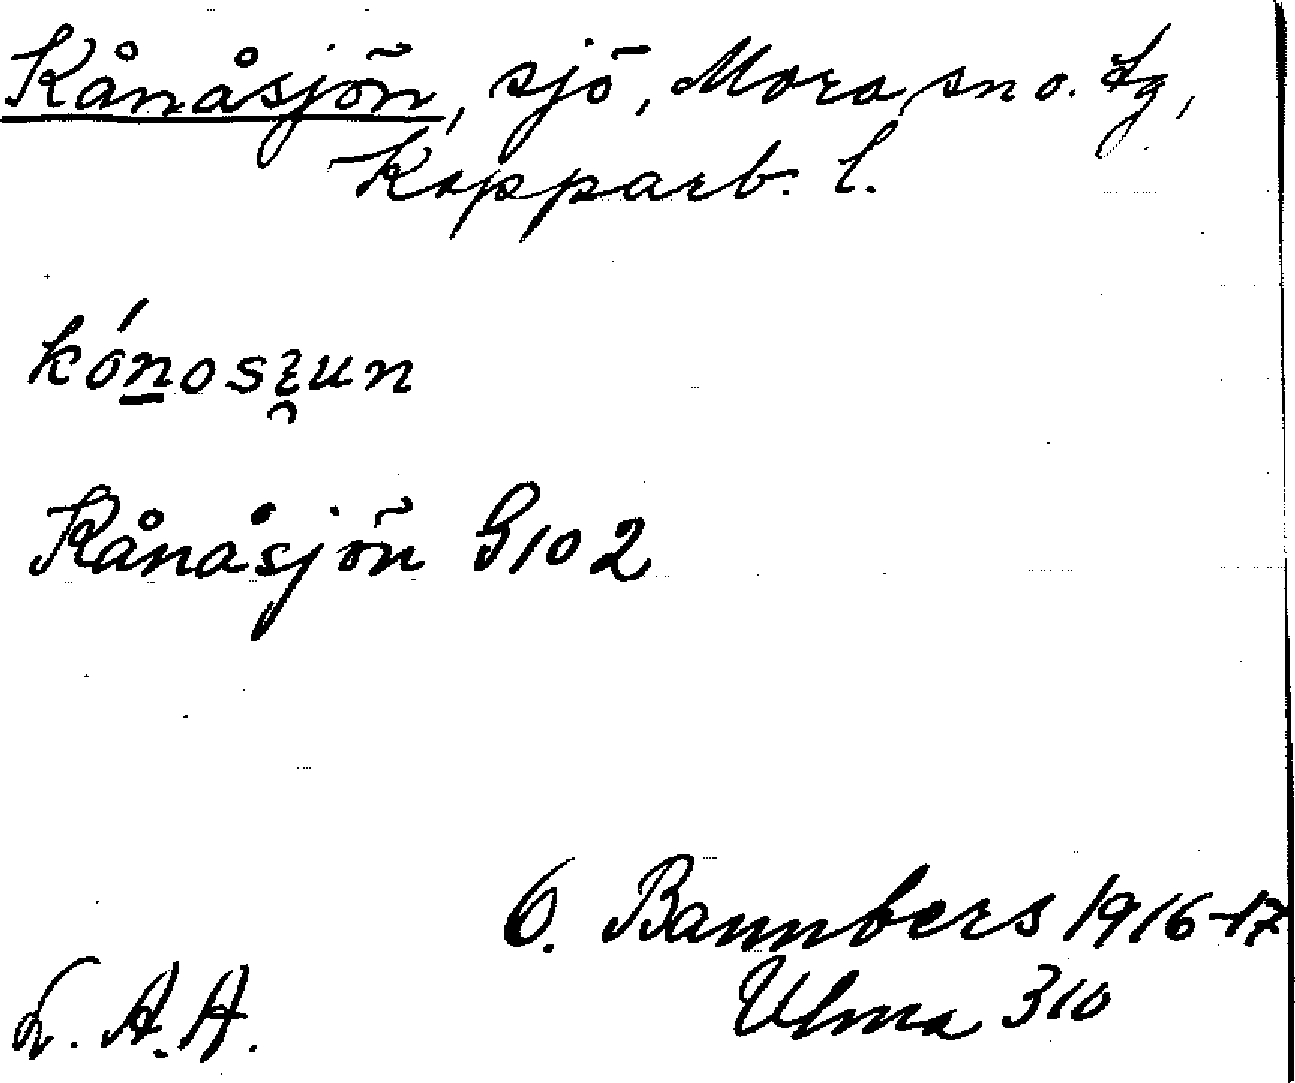 Kånåsjön, sjö, Mora sn o. tg,
Kopparb. l.
kónosʒun
Kånåsjön G102
O. Bannbers 1916-17
Ulma 310
L. A. A.